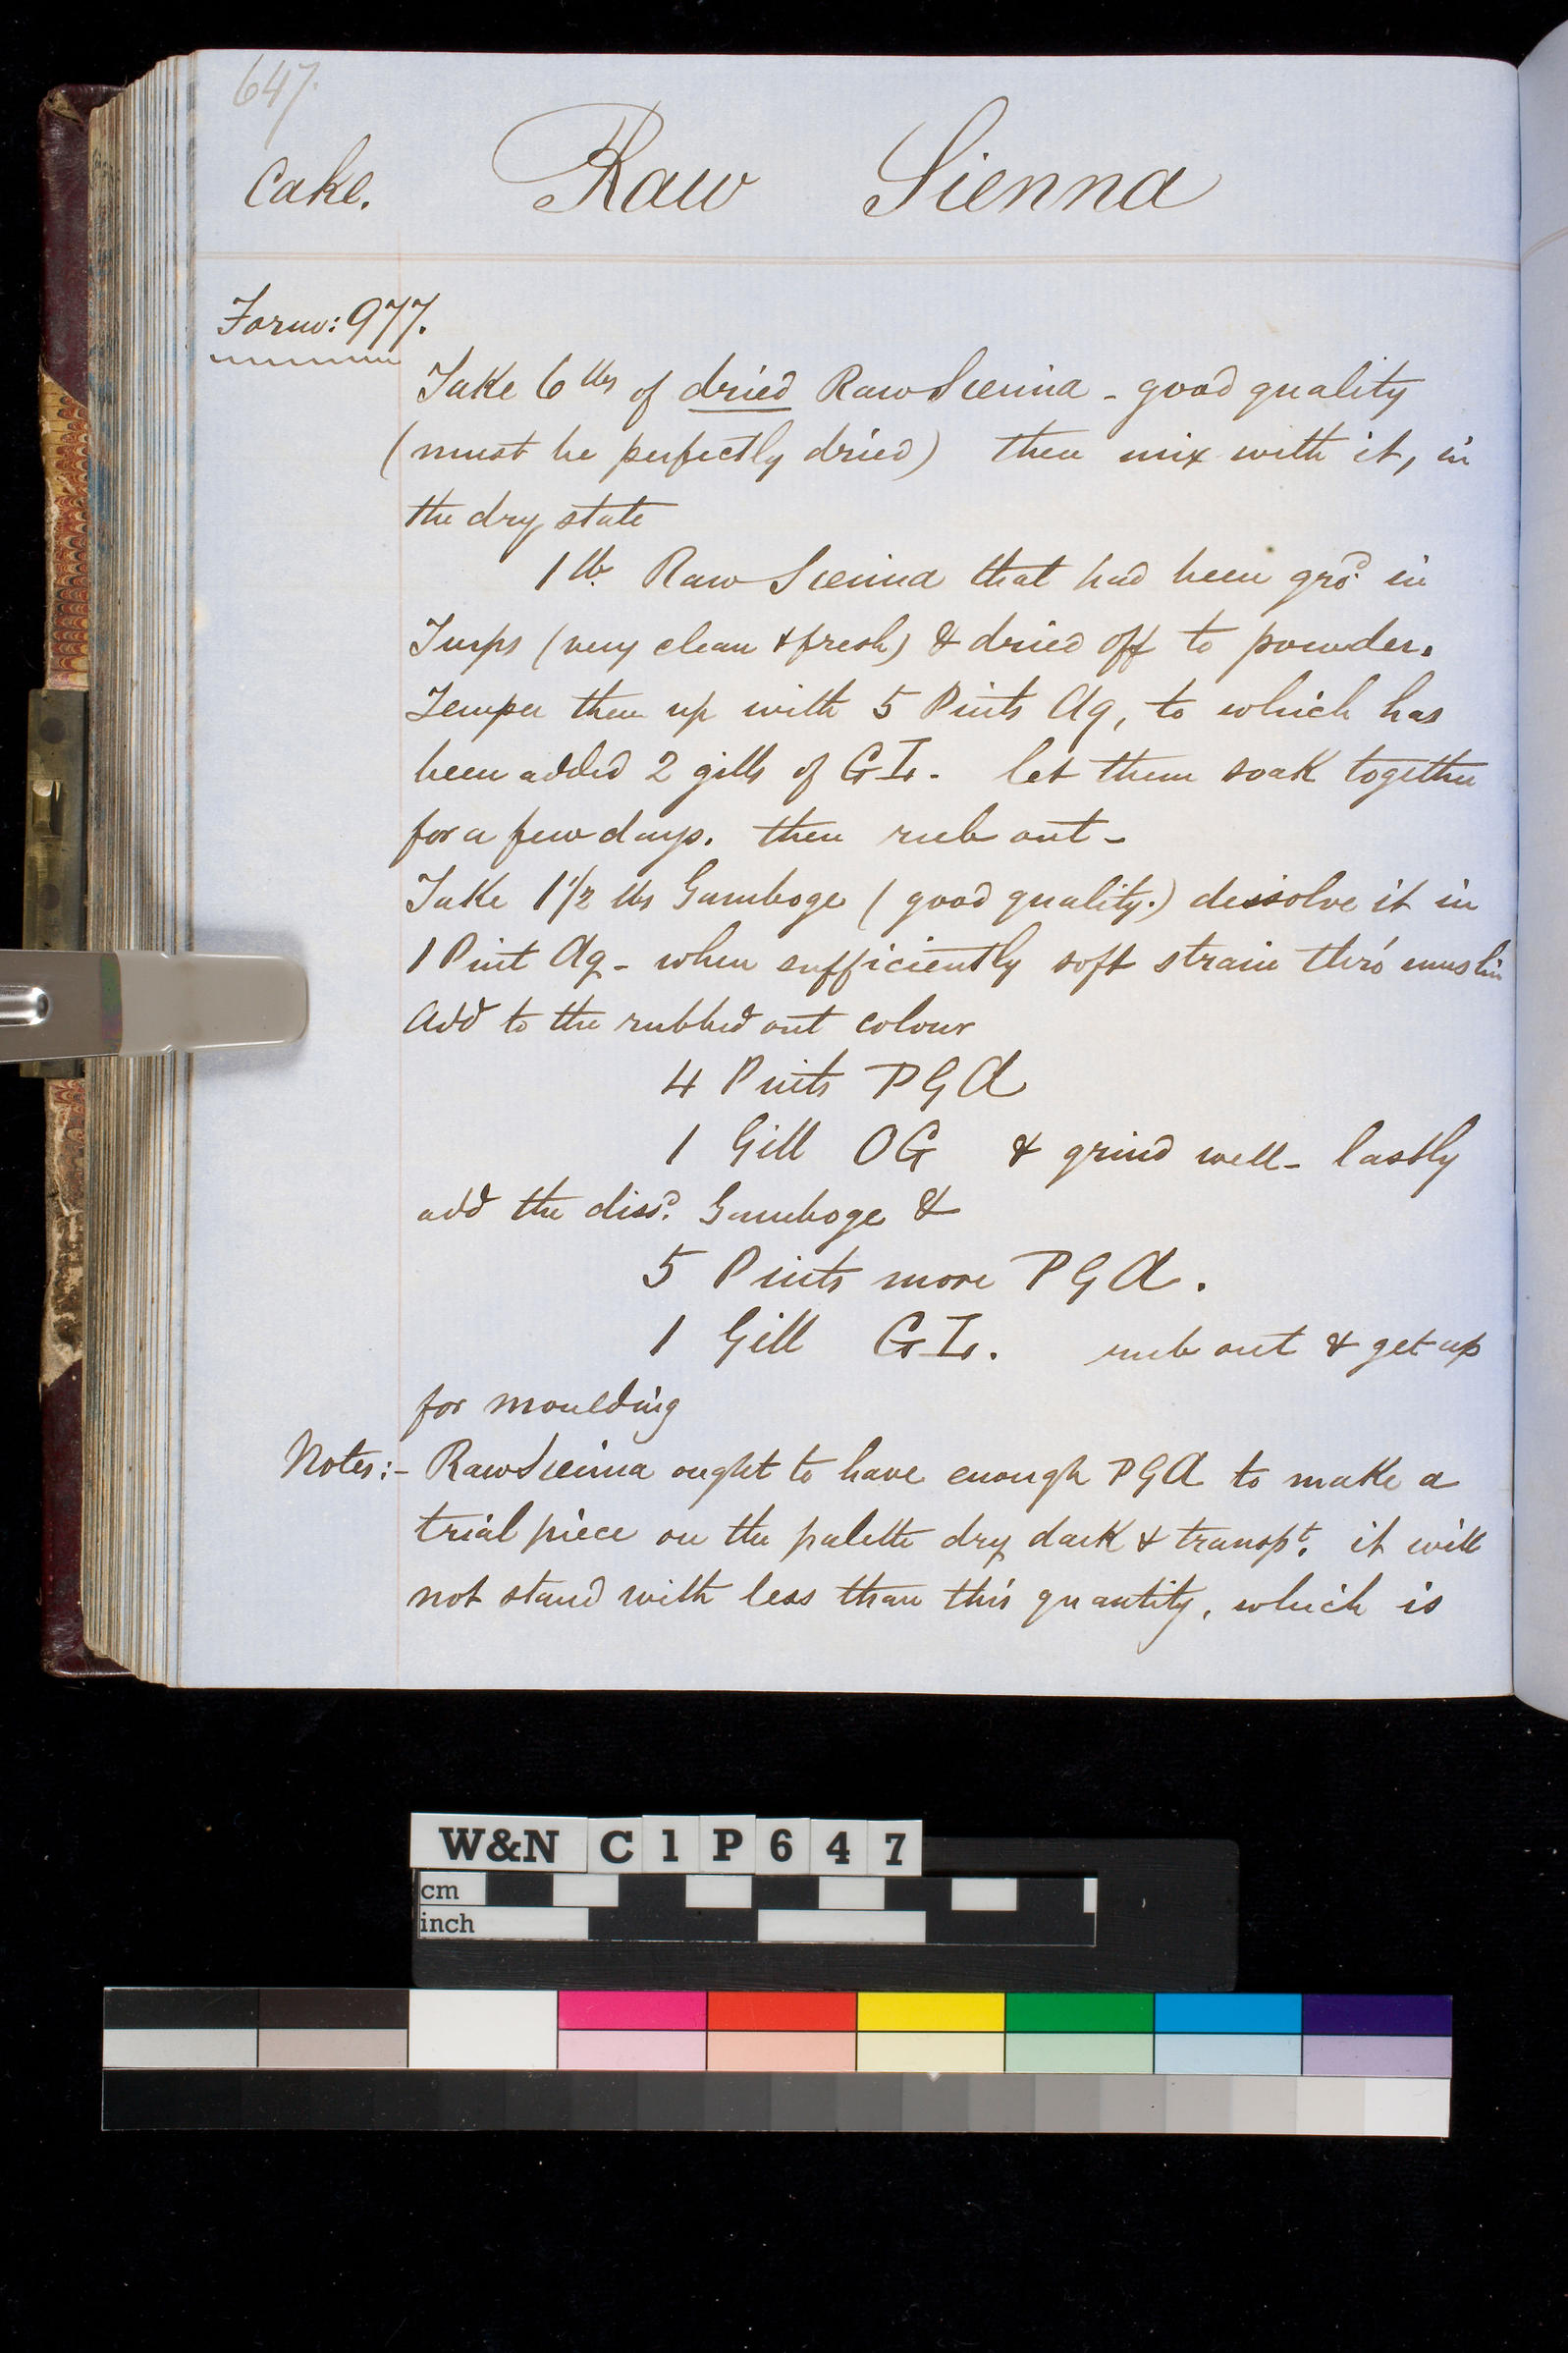 647.
Cake. Raw Sienna
Form: 977.
Take 6 lbs of dried Raw Sienna - good quality
(must be perfectly dried) then mix with it, in
the dry state
1 lb. Raw Sienna that had been gro.d in
Turps (very clean & fresh) & dried off to powder.
Temper them up with 5 Pints Aq, to which has
been added 2 gills of GL. let them soak together
for a few days. then rub out -
Take 1 1/2 lbs Gamboge (good quality.) dissolve it in
1 Pint Aq - when sufficiently soft strain thro' muslin
Add to the rubbed out colour
4 Pints PGA
1 Gill OG & grind well - lastly
add the diss.d Gamboge &
5 Pints more PGA.
1 Gill GL. rub out & get up
for moulding
Notes:- Raw Sienna ought to have enough PGA to make a
trial piece on the palette dry dark & transp.t. it will
not stand with less than this quantity, which is
W&N C1P647
cm
inch